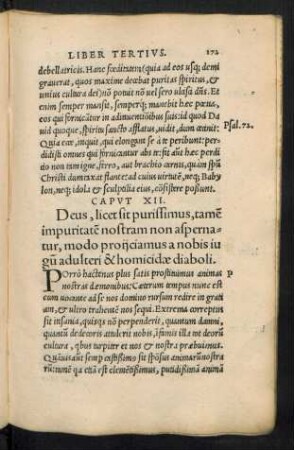 LIBER TERTIVS. 172
debellatricis. Hanc fœditatem (quia ad eos usq; demi
grauerat, quos maxime decebat puritas spiritus, &
unius cultura dei) nõ potui nõ uel sero ulosa dñs. Et
enim semper mansit, semperq; manebit hæc pœna,
eos qui fornicãtur in adinuentiõibus suis: id quod Da
uid quoque, spiritu sancto afflatus, uidit, dum canit:
Psal. 72.
Quia ecce, inquit, qui elongant se à te peribunt: per-
didisti omnes qui fornicantur abs te: sti añi hæc perdi
tio non in nigne, ferro, aut brachio carnis, quum psñ
Christi dumtaxat flante et ad cuius virtutē, neq; Baby
lon, neq; idola & sculptilia eius, cõsistere possunt.
CAPVT XII.
Deus, licet sit purissimus, tamē
impuritatē nostram non asperna
tur, modo proijciamus a nobis iu
gũ adulteri & homicidæ diaboli.
POrrò hactenus plus satis prostituimus animas
P
nostras dæmonibus: Cæterum tempus nunc est
cum uocante ad se nos domino rursum redire in grati
am, & ultro trahentē nos sequi. Extrema correpem
sit insania, quisqs nõ perpenderit, quantum damni,
quantũ dedecoris attulerit nobis, ipsius illa nõ deorũ
cultura, qbus turpiter et nos & nostra præbuimus.
Quãuis aũt semp castissimo sit spõsus animarũ nostra
rũ: tamē qa etiã est clemētissimus, putidissimã animã